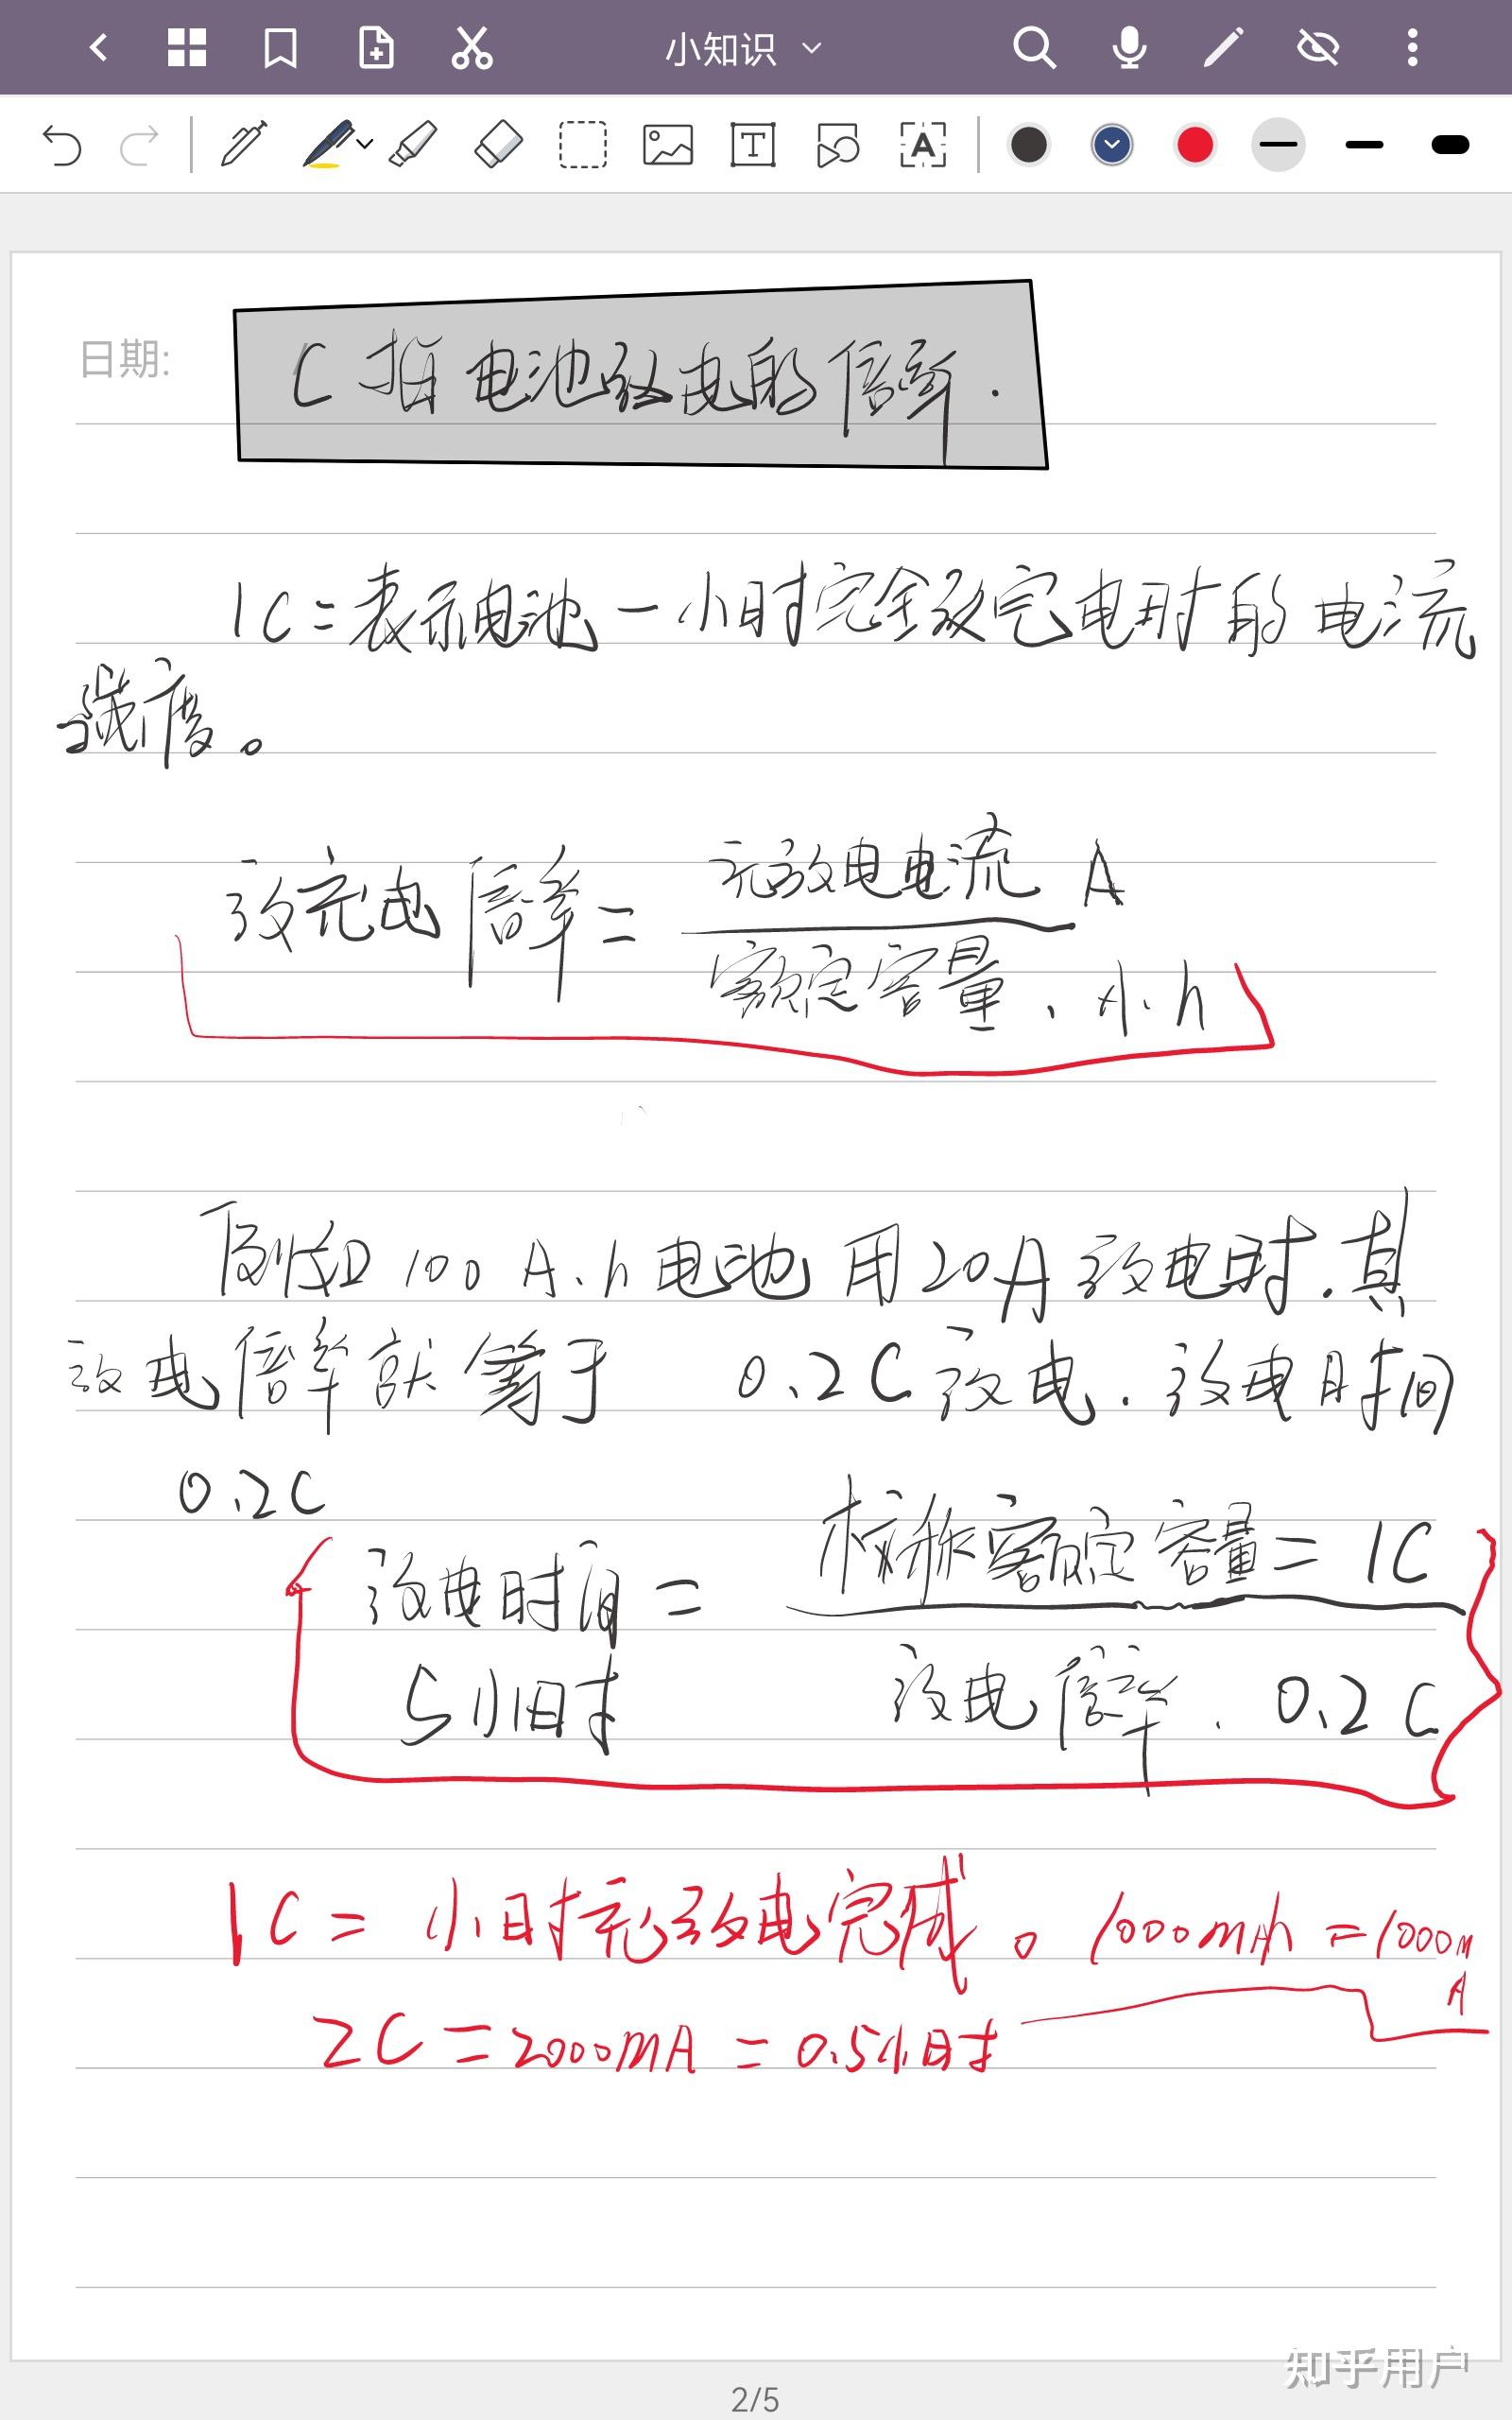 小知识
日期:
C指电池放电的倍率.
1C=表示电池一小时完全放完电时的电流
强度。
放充电倍率= 充放电电流 A
额定容量、A.h
例如100A.h电池用20A放电时.其
放电倍率就等于 0.2C放电.放电时间
0.2C
标称额定容量=1C
放电时间=
5小时 放电倍率. 0.2C
1C=小时充放电完成。1000mAh=1000m
A
2C=2000mA=0.5小时
知乎用户
2/5